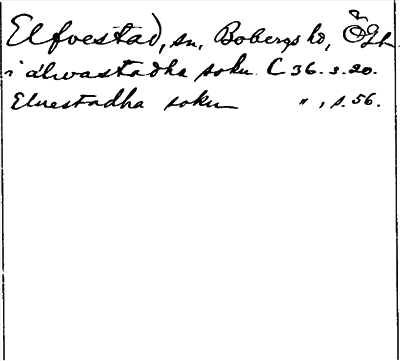 Elfvestad, sn, Bobergs hd, Ögl.
i alwastadha sokn C 36. s. 20.
Eluestadha sokn " , s. 56.